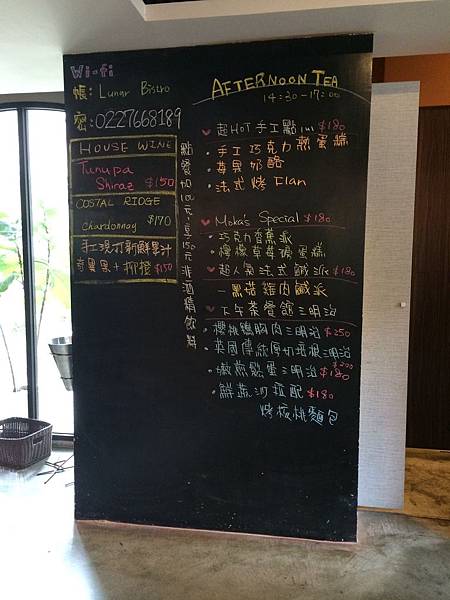 Wi-fi
帳: Lunar Bistro
密:0227668189
HOUSE WINE
Tunupa
Shiraz $150
COSTAL RIDGE
chardonnay $170
手工現打新鮮果汁
奇異果+柳橙 $150
點餐加100元,享150元非酒精飲料
AFTERNOON TEA
14:30-17:00
超HOT 手工點心 $180
·手工巧克力煎蛋糕
·莓果奶酪
·法式烤Flan
Moka's Special $180
·巧克力香蕉派
·檸檬草莓磅蛋糕
超人氣法式鹹派 $180
-黑菇雞肉鹹派
下午茶餐館三明治
·櫻桃鴨胸肉三明治 $250
·英國傳統厚切培根三明治 $200
·嫩煎鬆蛋三明治 $180
·鮮蔬沙拉配 $180
烤核桃麵包